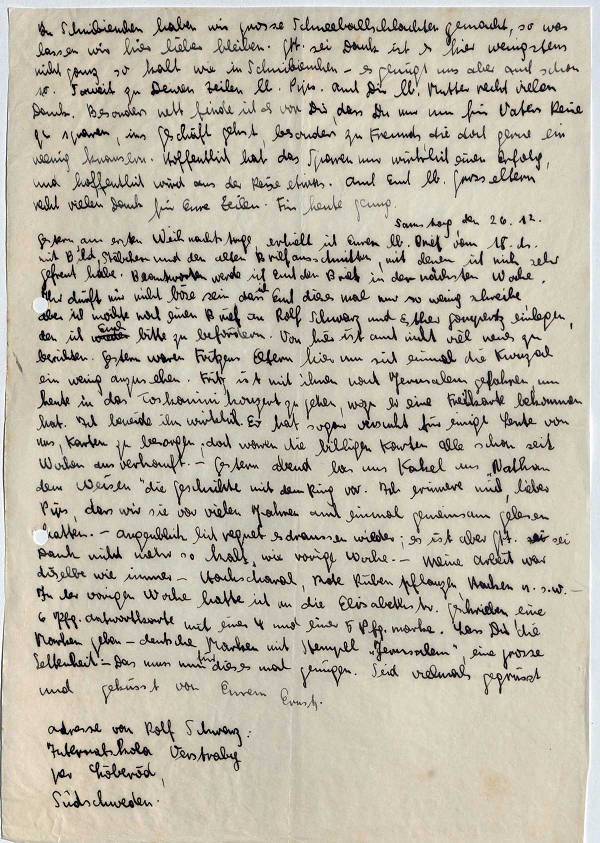 In Schneidemühen haben wir grosse Schneeballschlachten gemacht, so was
lassen wir hier lieber bleiben. Gtt. sei Dank ist es hier wenigstens
nicht ganz so kalt wie in – es genügt uns aber auch schon
so. Soweit zu Deinen Zeilen lb. Pips. auch Dir lb. Mutter recht vielen
Dank. Besonders nett finde ich es von Dir, dass Du nur um für Vaters Reise
zu sparen, ins Geschäft gehst, besonders zu Freunds die dort gerne ein
wenig knausern. Hoffentlich hat das Sparen nun wirklich einen Erfolg,
und hoffentlich wird aus der Reise etwas. auch Euch lb. Grosseltern
recht vielen Dank für Eure Zeilen. Für heute genug.
Samstag, den 26.12.
Gestern am ersten Weihnachtstage, erhielt ich Euren lb. Brief vom 18. ds.
mit Bild, und den alten Briefausschnitten, mit denen ich mich sehr
gefreut habe. Beantworten werde ich Euch den Brief in der nächsten Woche.
Ihr dürft mir nicht böse sein dass ich Euch dieses mal nur so wenig schreibe
aber ich möchte noch einen Brief an Rolf Schwarz und Esther einlegen,
den ich Euch bitte zu befördern. Von hier ist auch nicht viel neues zu
berichten. Gestern waren Fritzens Eltern hier um sich einmal die Kwuzah
ein wenig anzusehen. Fritz ist mit ihnen nach Jerusalem gefahren, um
heute in das Toskaninikonzert zu gehen, wozu er eine Freikarte bekommen
hat. Ich beneide ihn wirklich. Er hat sogar versucht für einige Leute von
uns, Karten zu besorgen, doch waren die billigen Karten alle schon seit
Wochen ausverkauft. – Gestern abend las uns aus „Nathan
dem Weisen" die Geschichte mit dem Ring vor. Ich erinnere mich, lieber
Pips, dass wir sie vor vielen Jahren auch einmal gemeinsam gelesen
hatten. – augenblicklich regnet es draussen wieder; es ist aber Gtt. sei
Dank nicht mehr so kalt, wie vorige Woche. – Meine Arbeit war
dieselbe wie immer – Rote Rüben pflanzen, Hacken u. s. w. –
In der vorigen Woche hatte ich an die Elisabethstr. geschrieben eine
6 Pfg. antwortkarte mit einer 4 und einer 5 Pfg. marke. Lass Dir die
Marken geben – deutsche Marken mit Stempel „Jerusalem", eine grosse
Seltenheit – Das muss nun für dieses mal genügen. Seid vielmals gegrüsst
und geküsst von Eurem Ernst.
adresse von Rolf Schwarz:
Internatskola Västraby
per
Südschweden.